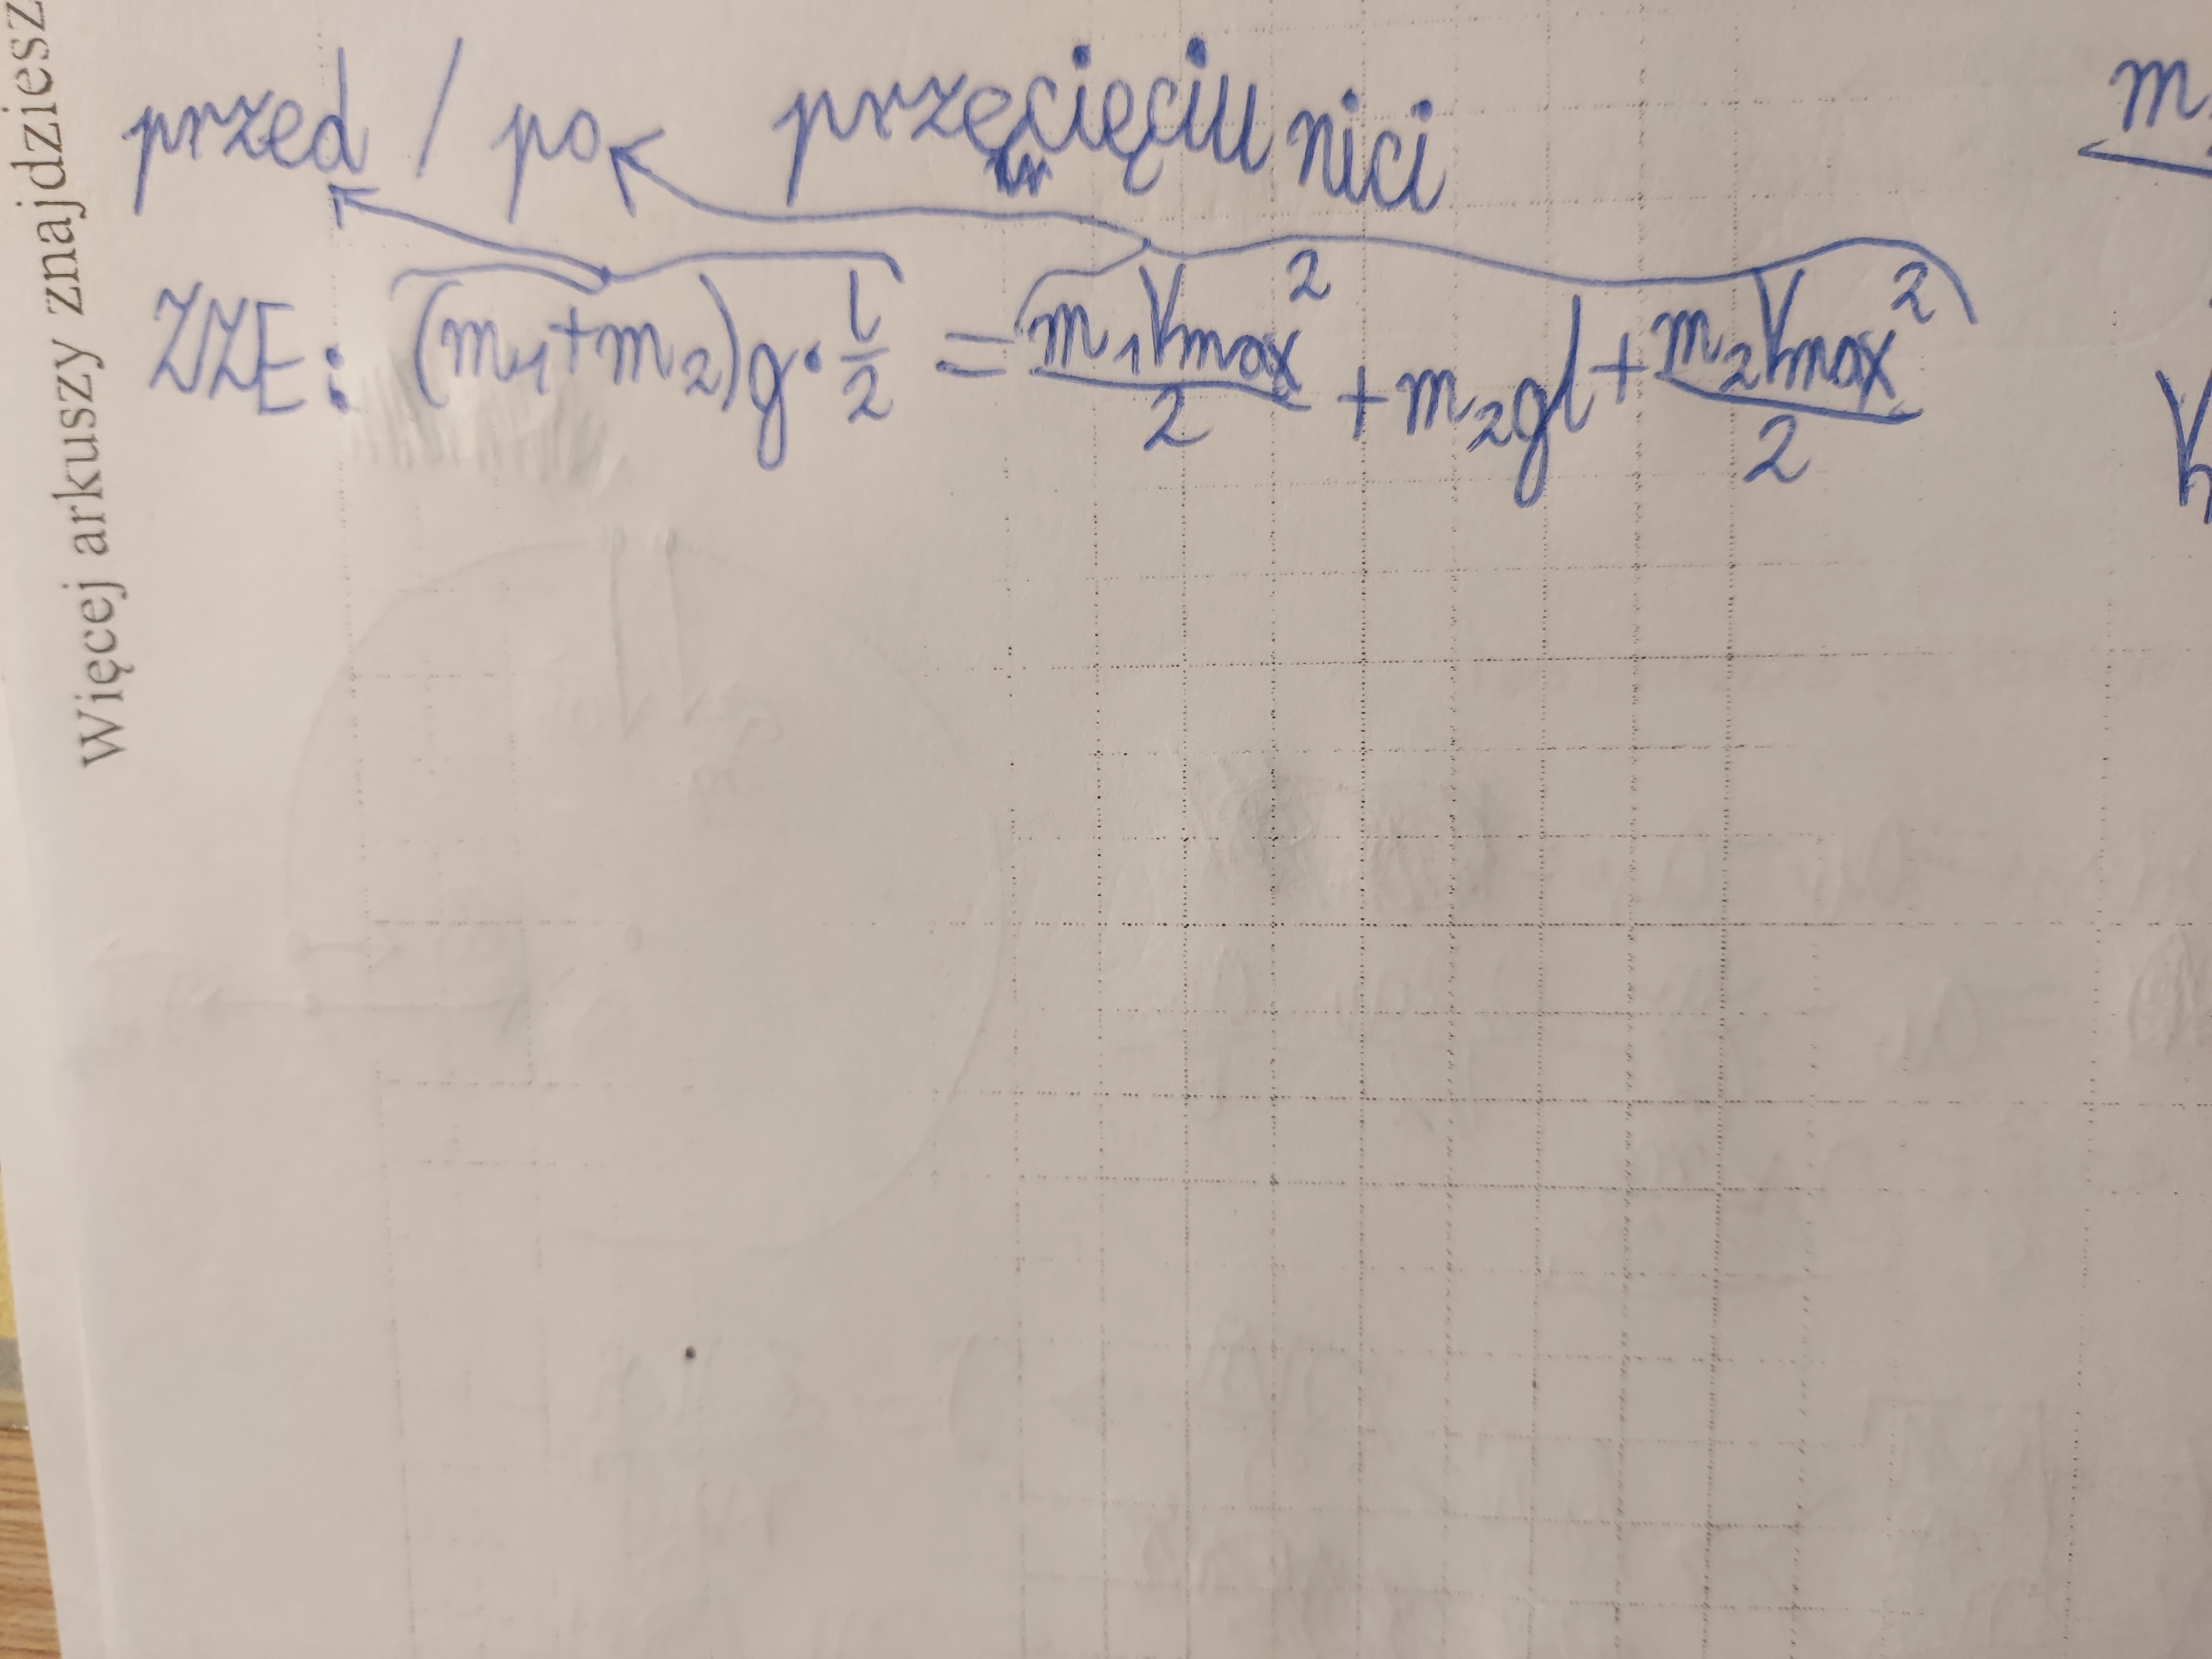 Więcej arkuszy znajdziesz
przed / po przecięciu nici
ZZE: (m₁+m₂)g·l/2 = m₁Vmax²/2 + m₂gl + m₂Vmax²/2